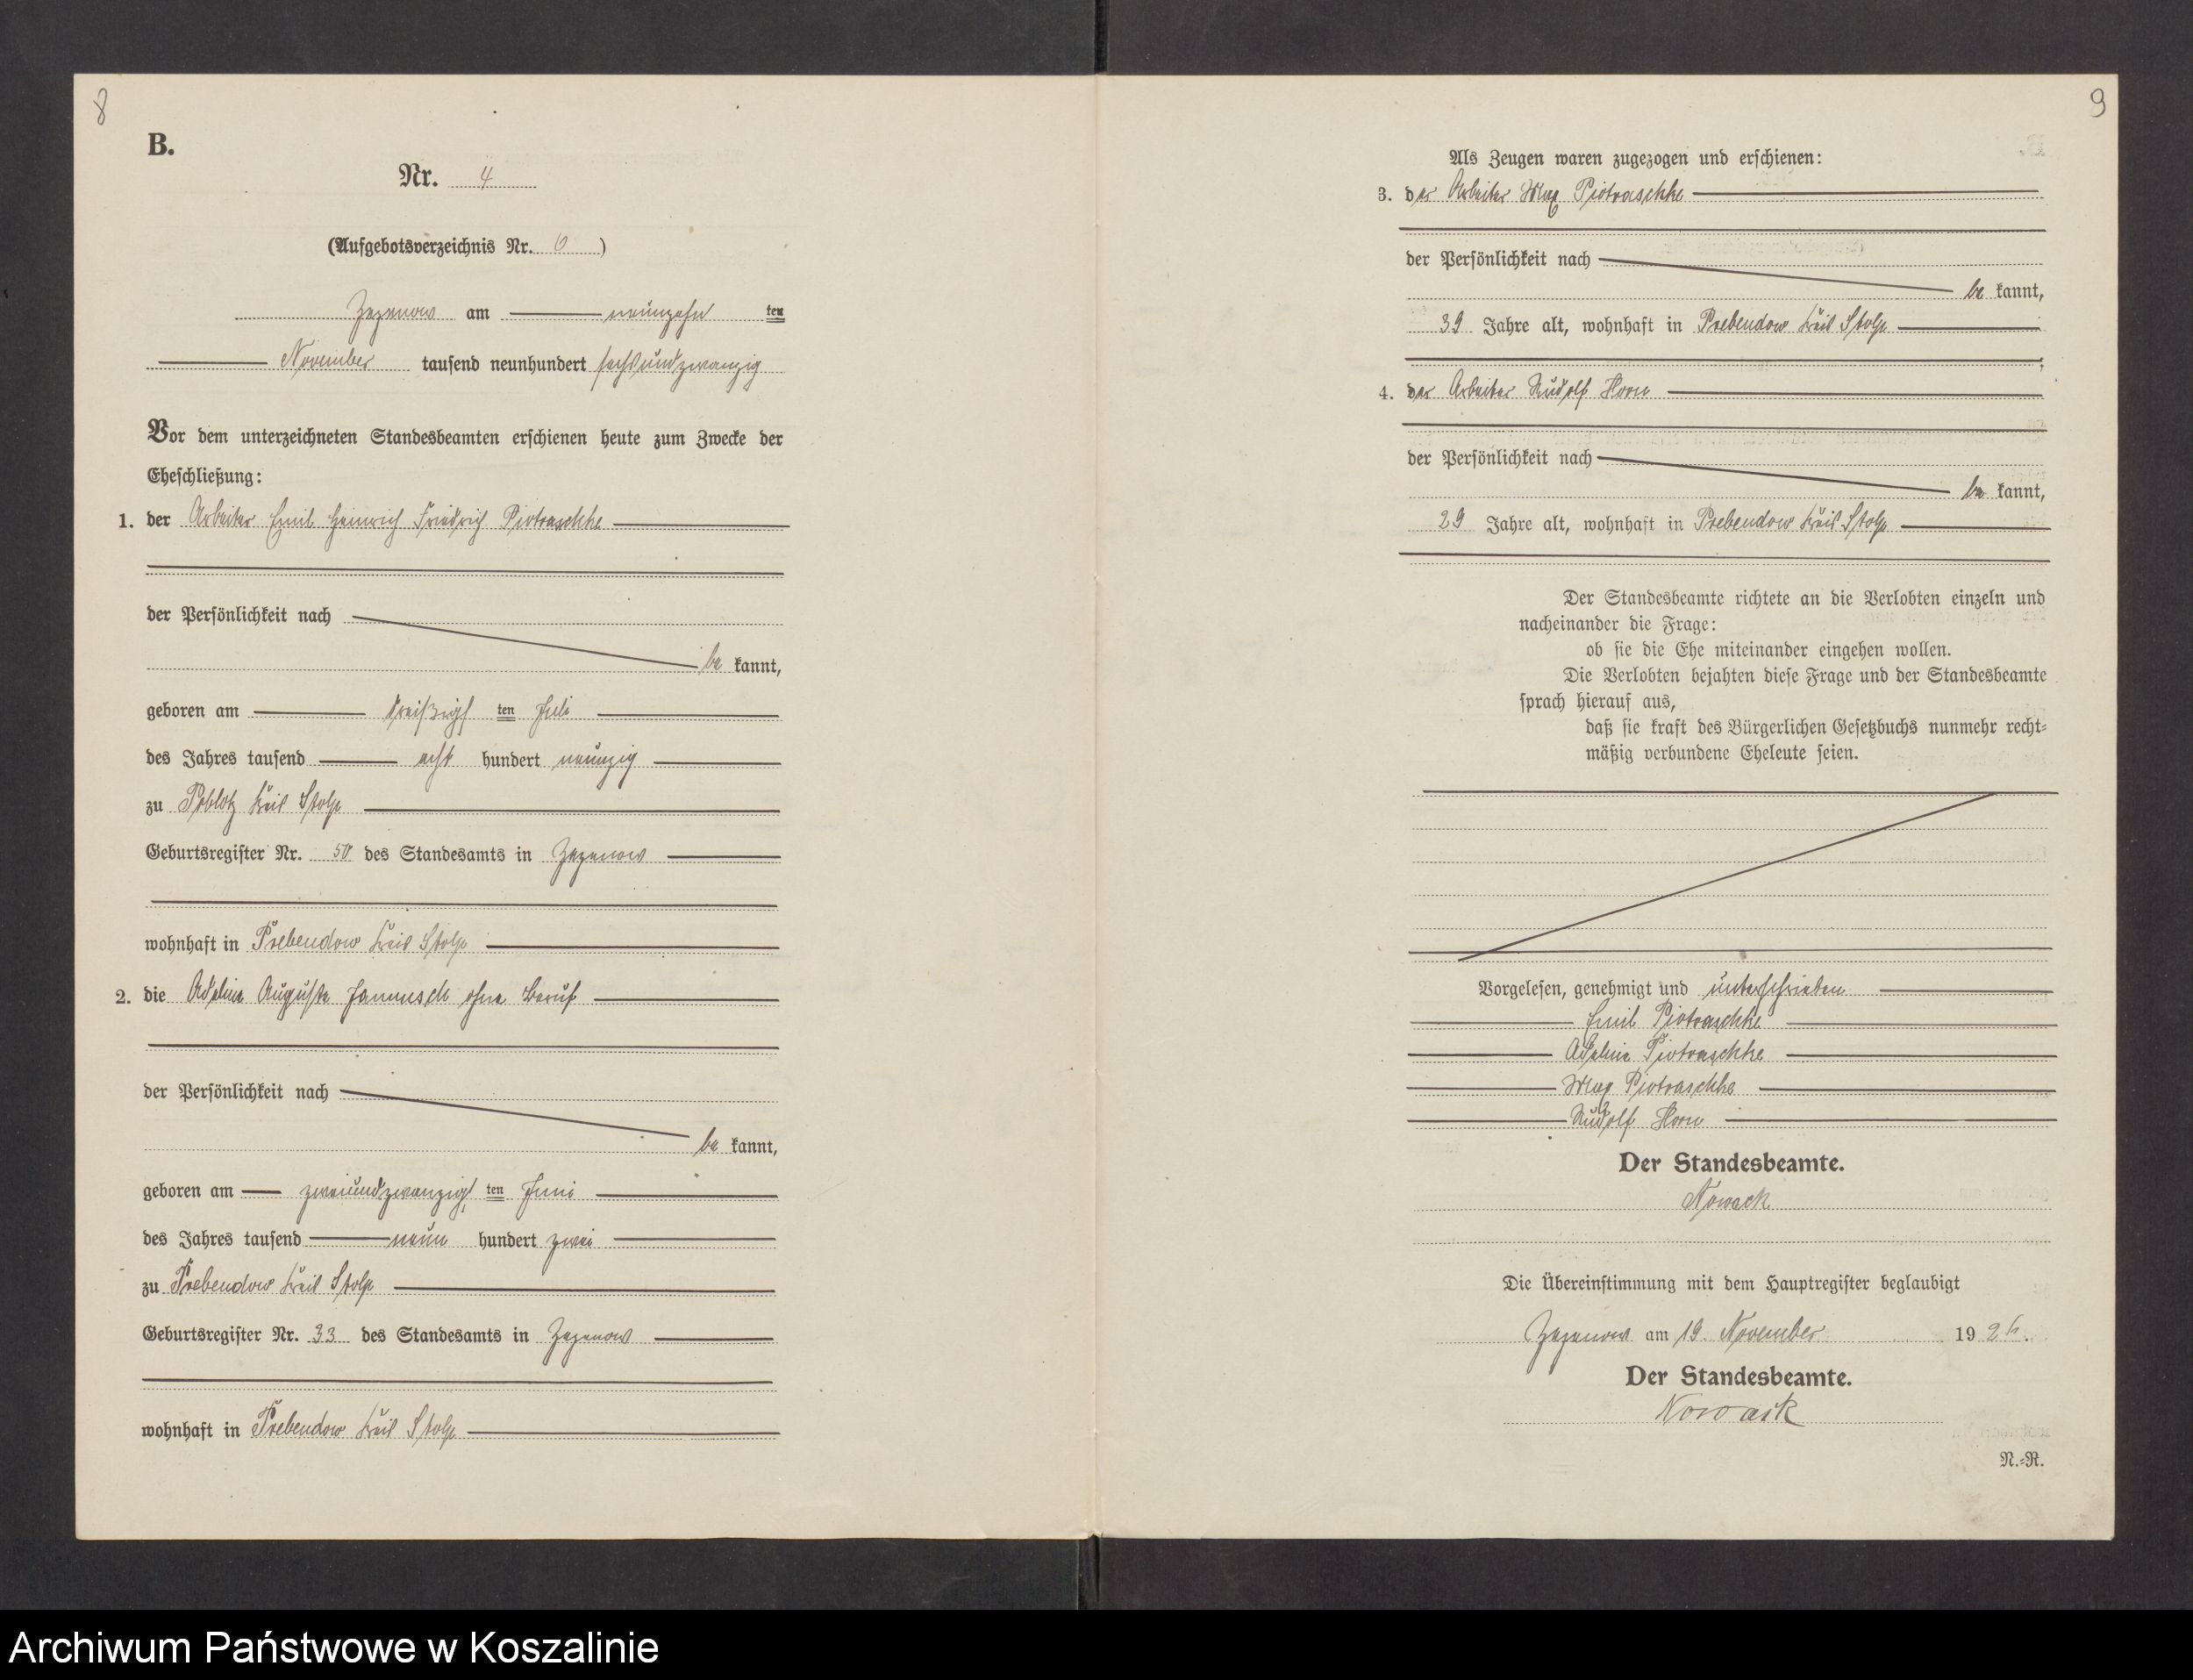 8
B.
Nr. 4
(Aufgebotsverzeichnis Nr. 6)
Zezenow am neunzehn ten
November tausend neunhundert sechsundzwanzig
Vor dem unterzeichneten Standesbeamten erschienen heute zum Zwecke der
Eheschließung:
1. der Arbeiter Emil Heinrich Friedrich Piotraschke
der Persönlichkeit nach
be kannt,
geboren am dreißigst ten Juli
des Jahres tausend acht hundert neunzig
zu Poblotz Kreis Stolp
Geburtsregister Nr. 50 des Standesamts in Zezenow
wohnhaft in Prebendow Kreis Stolp
2. die Adeline Auguste Jannusch ohne Beruf
der Persönlichkeit nach
be kannt,
geboren am zweiundzwanzigst ten Juni
des Jahres tausend neun hundert zwei
zu Prebendow Kreis Stolp
Geburtsregister Nr. 33 des Standesamts in Zezenow
wohnhaft in Prebendow Kreis Stolp
9
Als Zeugen waren zugezogen und erschienen:
3. der Arbeiter Max Piotraschke
der Persönlichkeit nach
be kannt,
39 Jahre alt, wohnhaft in Prebendow Kreis Stolp
;
4. der Arbeiter Rudolf Horn
der Persönlichkeit nach
be kannt,
29 Jahre alt, wohnhaft in Prebendow Kreis Stolp
Der Standesbeamte richtete an die Verlobten einzeln und
nacheinander die Frage:
ob sie die Ehe miteinander eingehen wollen.
Die Verlobten bejahten diese Frage und der Standesbeamte
sprach hierauf aus,
daß sie kraft des Bürgerlichen Gesetzbuchs nunmehr recht-
mäßig verbundene Eheleute seien.
Vorgelesen, genehmigt und unterschrieben
Emil Piotraschke
Adeline Piotraschke
Max Piotraschke
Rudolf Horn
Der Standesbeamte.
Nowack
Die Übereinstimmung mit dem Hauptregister beglaubigt
Zezenow am 19. November 1926.
Der Standesbeamte.
Nowack
N.-R.
Archiwum Państwowe w Koszalinie